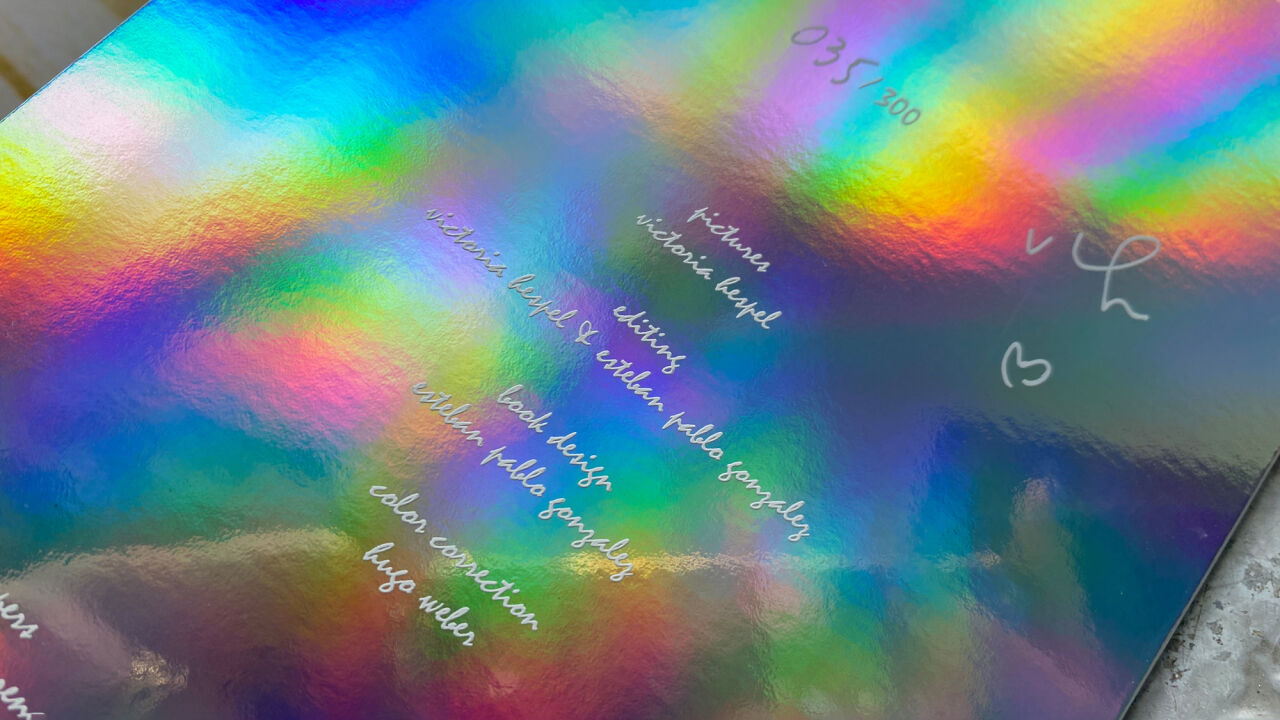 035/300
pictures
victoria hespel
editing
victoria hespel & esteban pablo gonzalez
book design
esteban pablo gonzalez
color correction
hugo weber